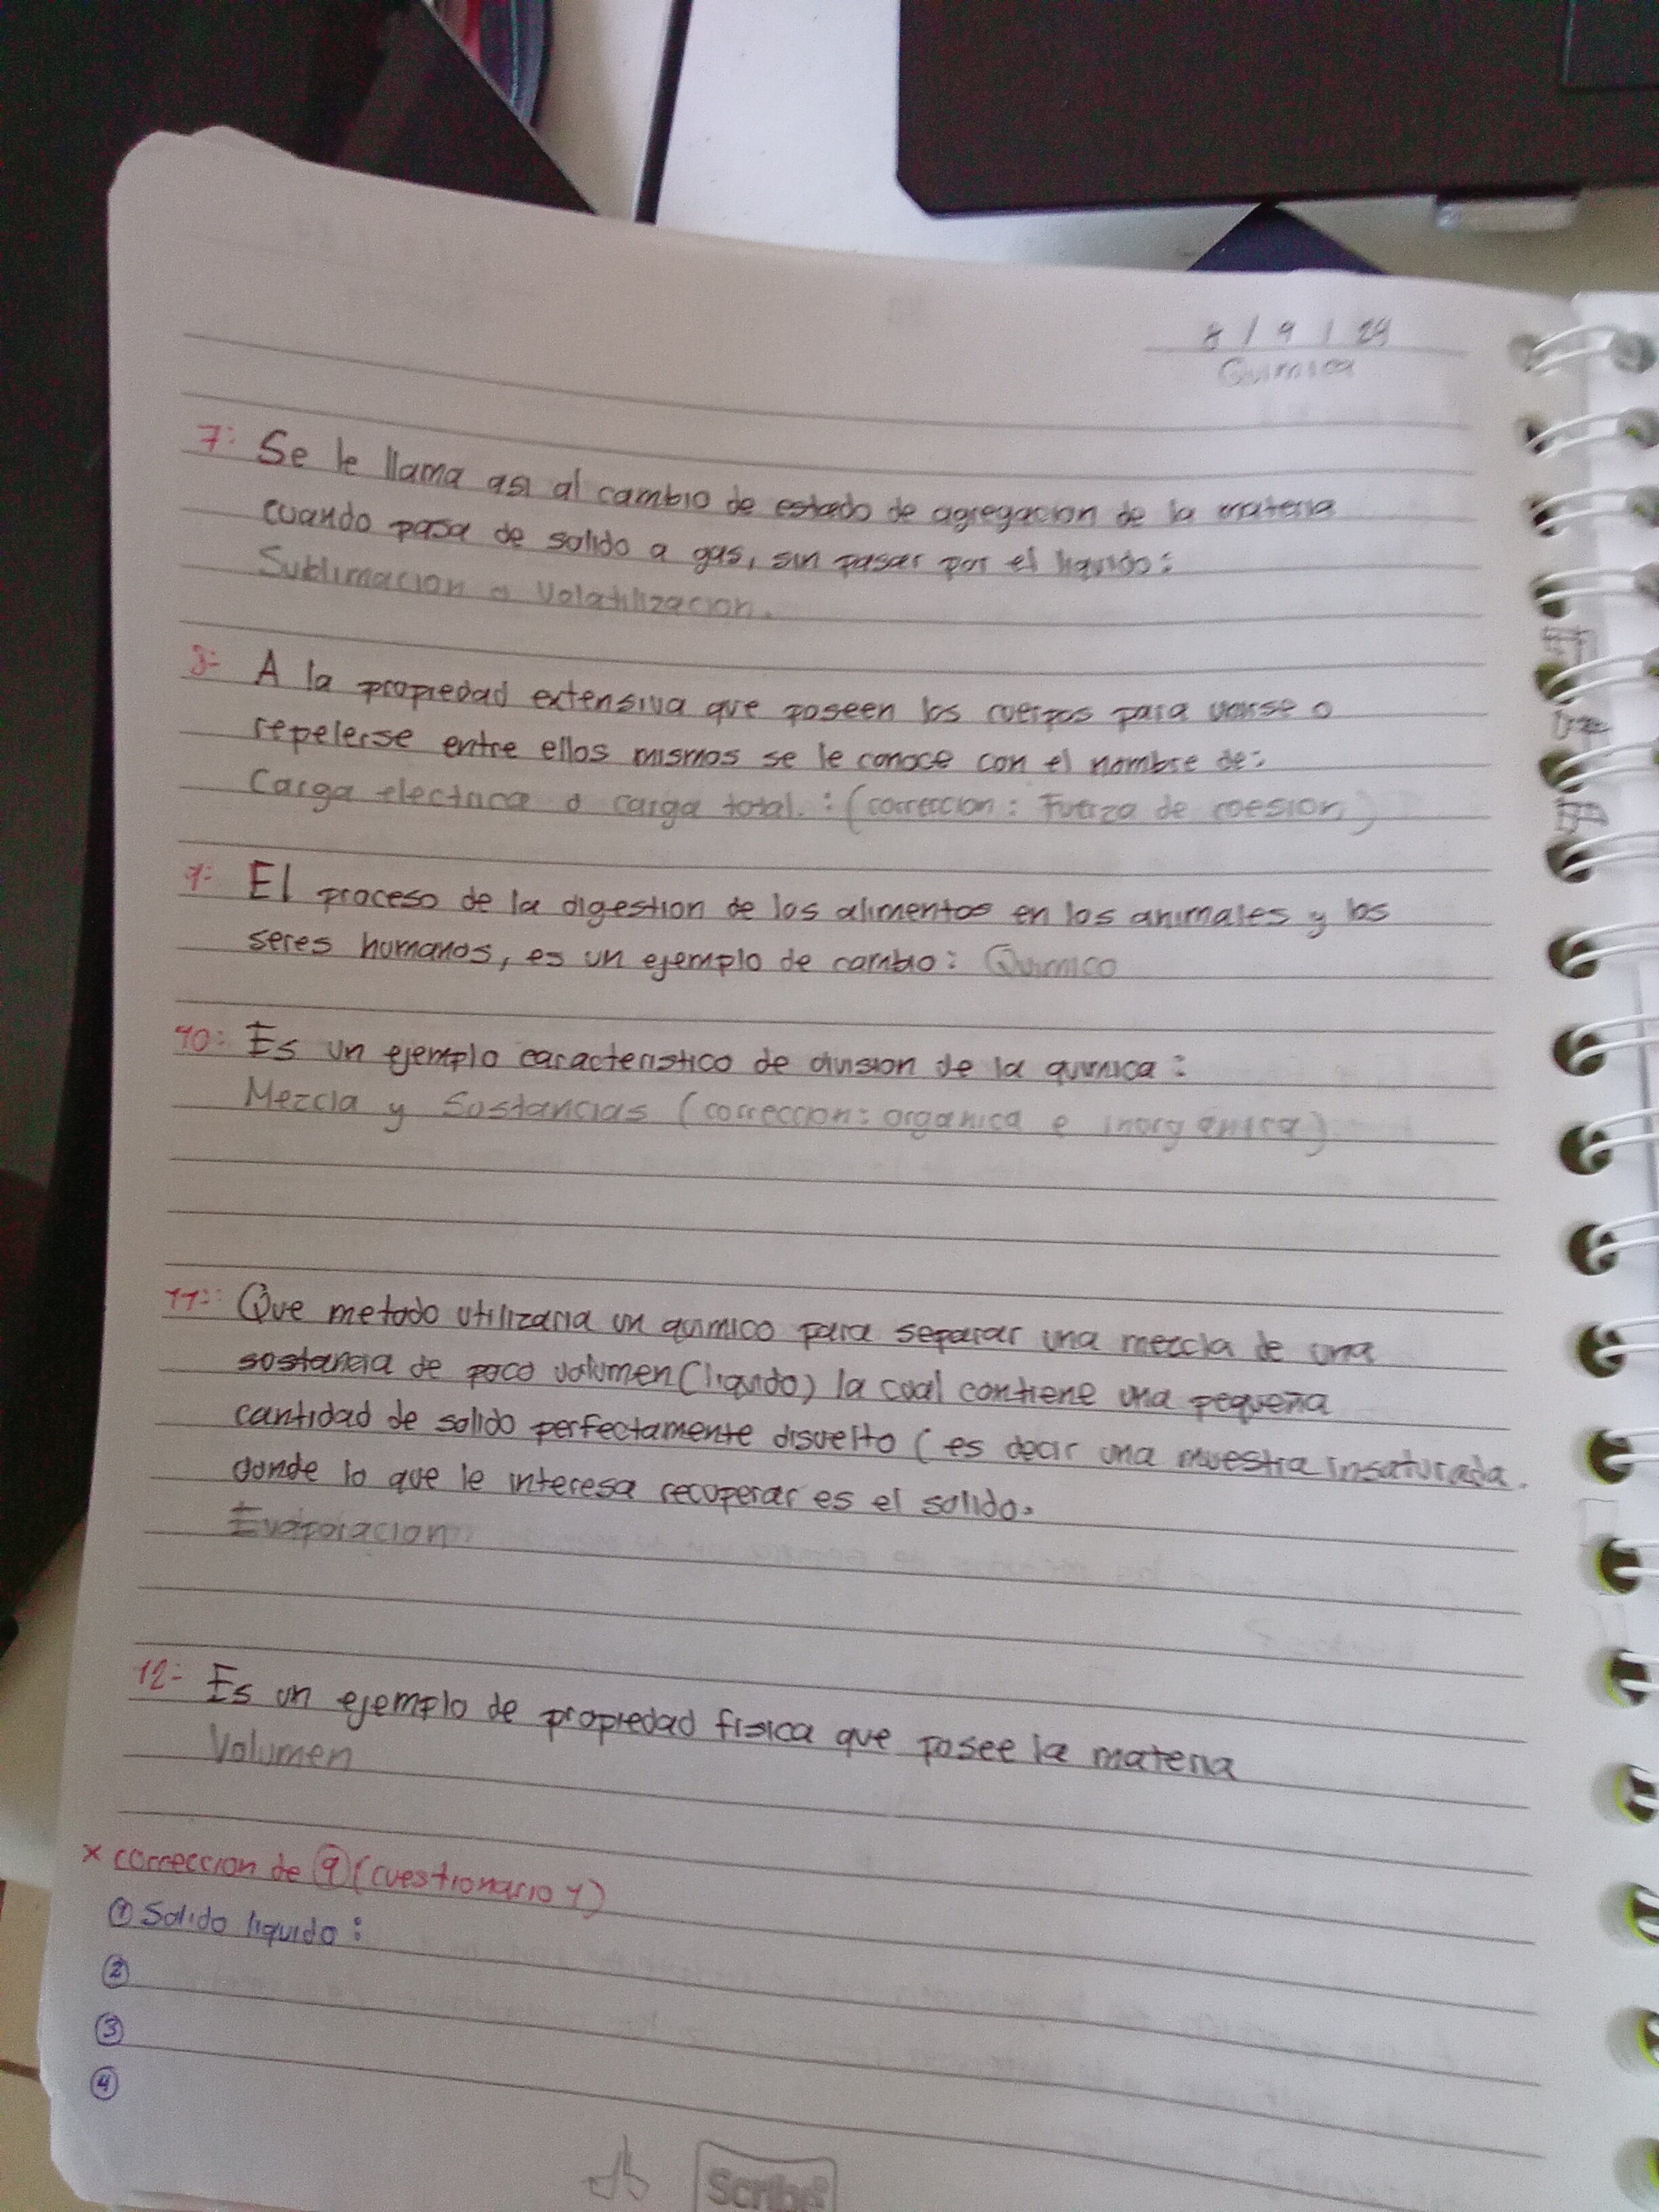 8 / 9 / 24
Quimica
7: Se le llama asi al cambio de estado de agregacion de la materia
cuando pasa de solido a gas, sin pasar por el liquido:
Sublimacion o Volatilizacion.
8: A la propiedad extensiva que poseen los cuerpos para unirse o
repelerse entre ellos mismos se le conoce con el nombre de:
Carga electrica o carga total. : (correccion: Fuerza de coesion,)
9: El proceso de la digestion de los alimentos en los animales y los
seres humanos, es un ejemplo de cambio: Quimico
10: Es un ejemplo caracteristico de division de la quimica:
Mezcla y Sustancias (correccion: organica e inorganica)
11: Que metodo utilizaria un quimico para separar una mezcla de una
sostancia de poco volumen (liquido) la cual contiene una pequeña
cantidad de solido perfectamente disuelto (es decir una muestra insaturada.
donde lo que le interesa recuperar es el solido.
Evaporacion
12- Es un ejemplo de propiedad fisica que posee la materia
Volumen
x correccion de 9 (cuestionario 1)
① Solido liquido:
②
③
④
Scribe